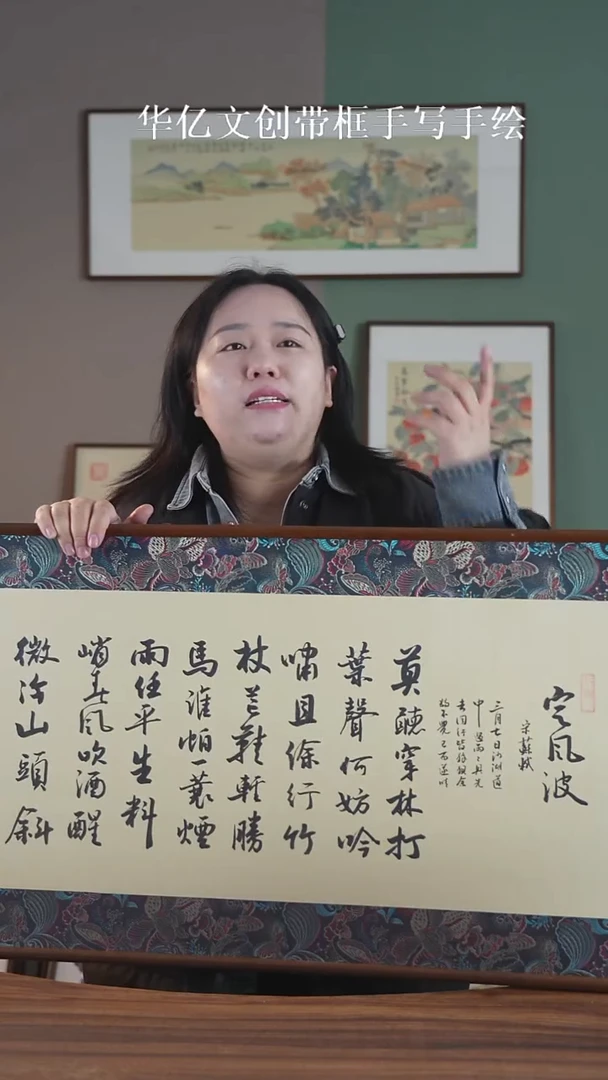 华亿文创带框手写手绘
定风波
宋蘇軾
三月七日沙湖道
中遇雨雨具先
去同行皆狼狽余
獨不覺已而遂晴
莫聽穿林打
葉聲何妨吟
嘯且徐行竹
杖芒鞋輕勝
馬誰怕一蓑煙
雨任平生料
峭春风吹酒醒
微冷山頭斜